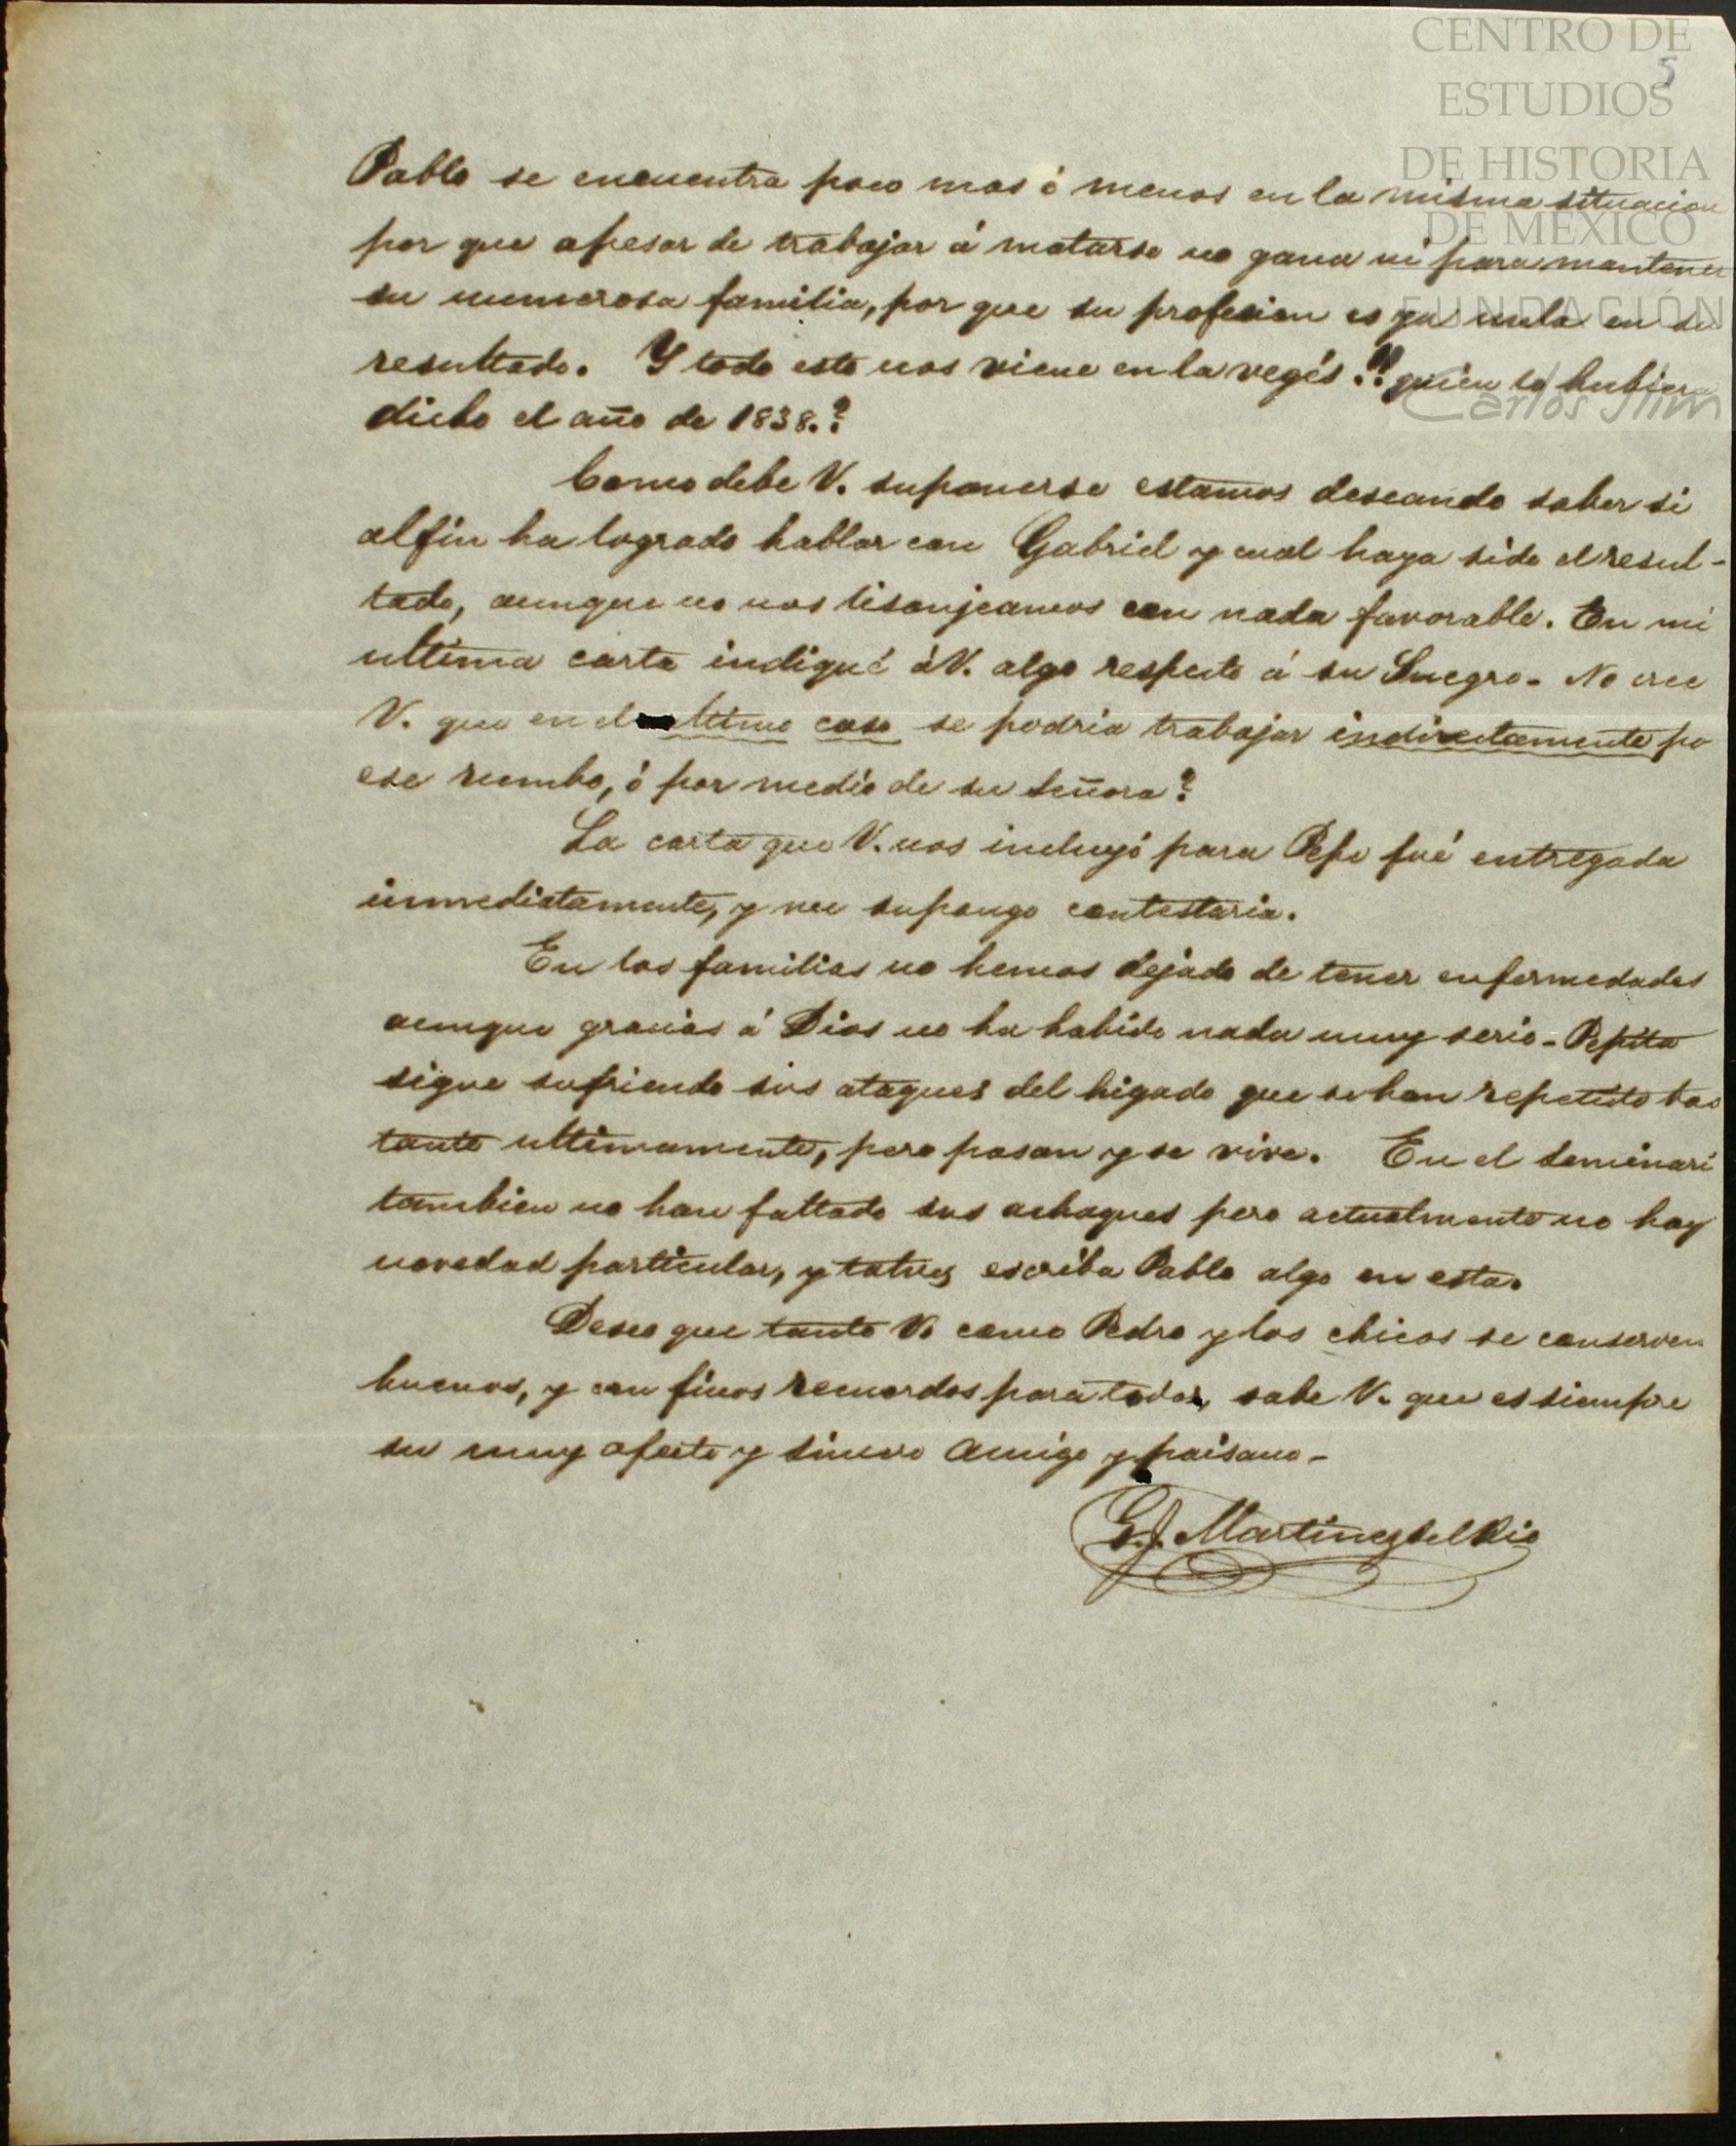 CENTRO DE
ESTUDIOS
DE HISTORIA
DE MÉXICO
FUNDACIÓN
Carlos Slim
5
Pablo se encuentra poco mas ó menos en la misma situacion
por que apesar de trabajar á matarse no gana ni para mantener
su numerosa familia, por que su profesion es ya nula en su
resultado. Y todo esto nos viene en la vegés!! quien lo hubiera
dicho el año de 1838.?
Como debe V. suponerse estamos deseando saber si
alfin ha logrado hablar con Gabriel y cual haya sido el resul-
tado, aunque no nos lisonjeamos con nada favorable. En mi
ultima carta indiqué á V. algo respecto á su Suegro. No cree
V. que en el ultimo caso se podria trabajar indirectamente po
ese rumbo, ó por medio de su Señora?
La carta que V. nos incluyó para Pepe fué entregada
inmediatamente, y me supongo contestaria.
En las familias no hemos dejado de tener enfermedades
aunque gracias á Dios no ha habido nada muy serio - Pepita
sigue sufriendo sus ataques del higado que se han repetido bas
tante ultimamente, pero pasan y se vive. En el Seminari
tambien no han faltado sus achaques pero actualmente no hay
novedad particular, y talves escriba Pablo algo en esta.
Deseo que tanto V. como Pedro y los chicos se conserven
buenos, y con finos recuerdos para todos, sabe V. que es siempre
su muy afecto y sincero amigo y paisano -
G. J. Martinez del Rio